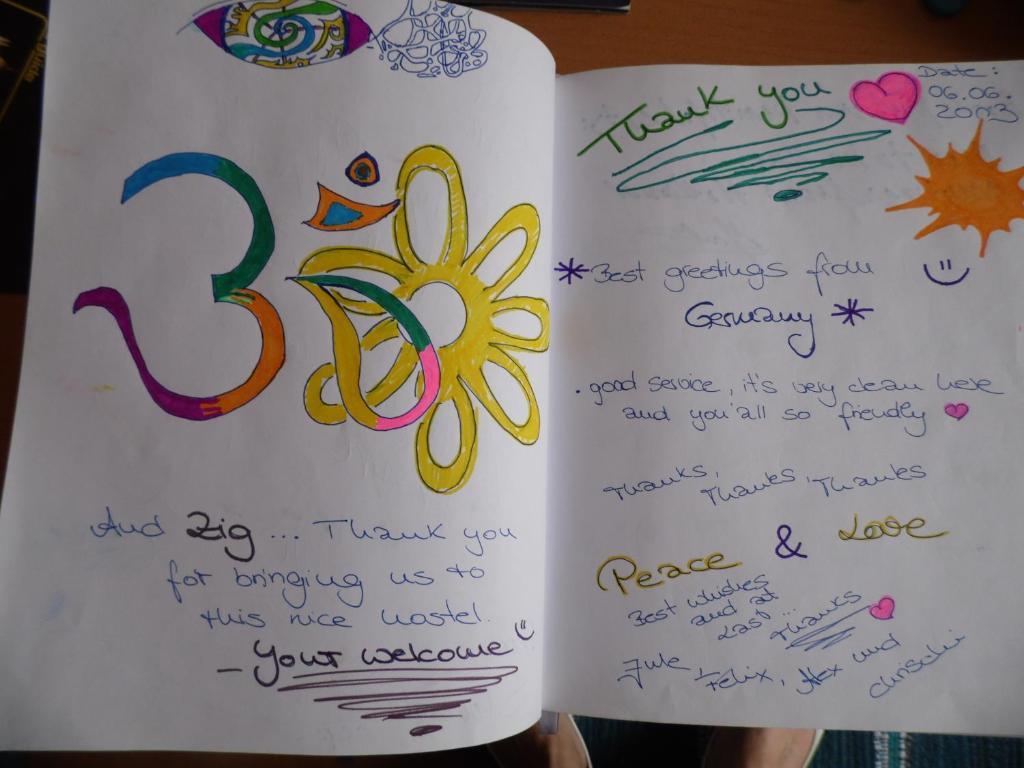 ॐ
And Zig ... Thank you
for bringing us to
this nice hostel.
- Your welcome
Thank you
Date:
06.06.
2013
* Best greetings from
Germany *
. good service, it's very clean here
and you'all so friendly
Thanks, Thanks, Thanks
Peace & Love
Best whishes
and at
Last...
Thanks
Jule, Felix, Alex und